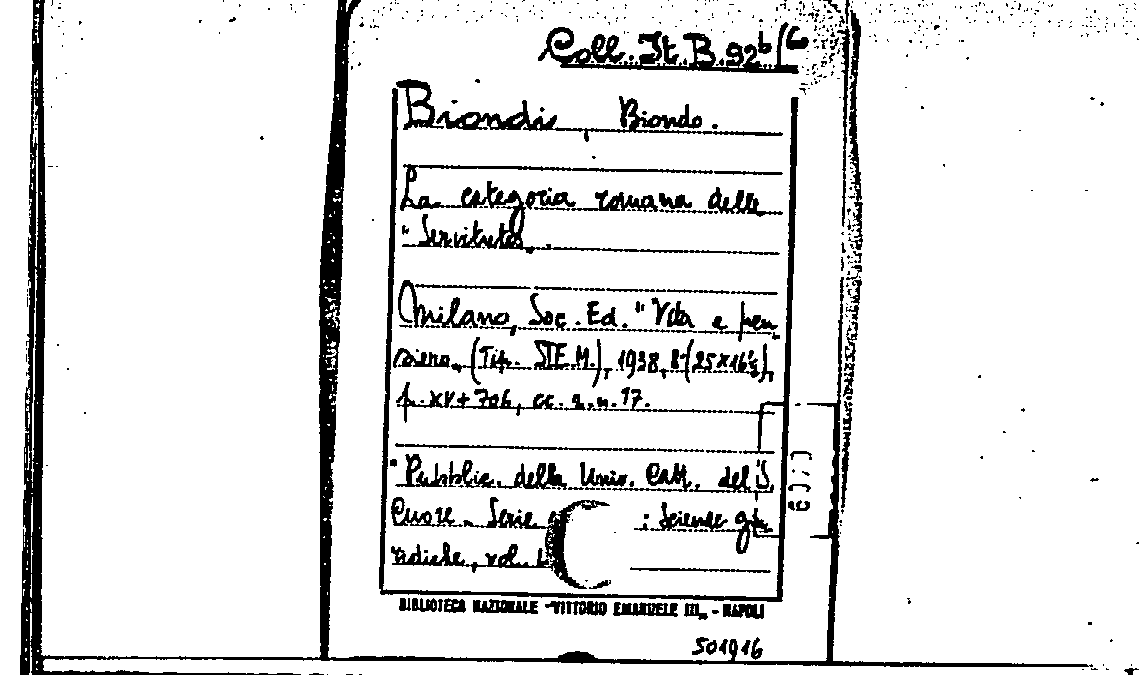 Coll. It. B. 92 b/6
Biondi, Biondo.
La categoria romana delle
"Servitutes".
Milano, Soc. Ed. "Vita e pen
siero", (Tip. S.T.E.M.), 1938, 8° (25×16½),
p. XV+706, cc. 2. n. 17.
"Pubblic. della Univ. Catt. del S.
Cuore". Serie : Scienze giu
ridiche, vol.
BIBLIOTECA NAZIONALE "VITTORIO EMANUELE III" - NAPOLI
501916